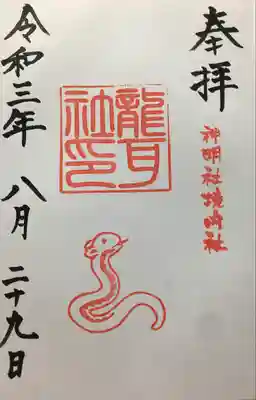 奉拝
神明社境崎社
龍耳社印
令和三年 八月 二十九日